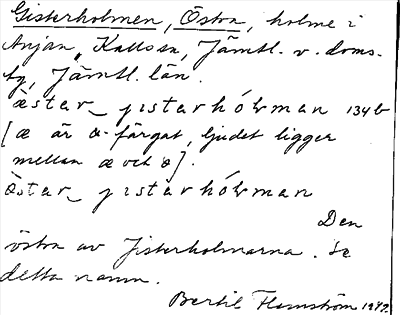 Gisterholmen, Östra, holme i
Anjan, Kallssn, Jämtl. v. doms.
tg, Jämtl. län.
æ̀star_ jɪstarhólʋman 134 b
[æ är ö-färgat, ljudet ligger
mellan æ och ö].
ö̀star_ jɪstarhólʋman
Den
östra av Jisterholmarna. Se
detta namn.
Bertil Flemström